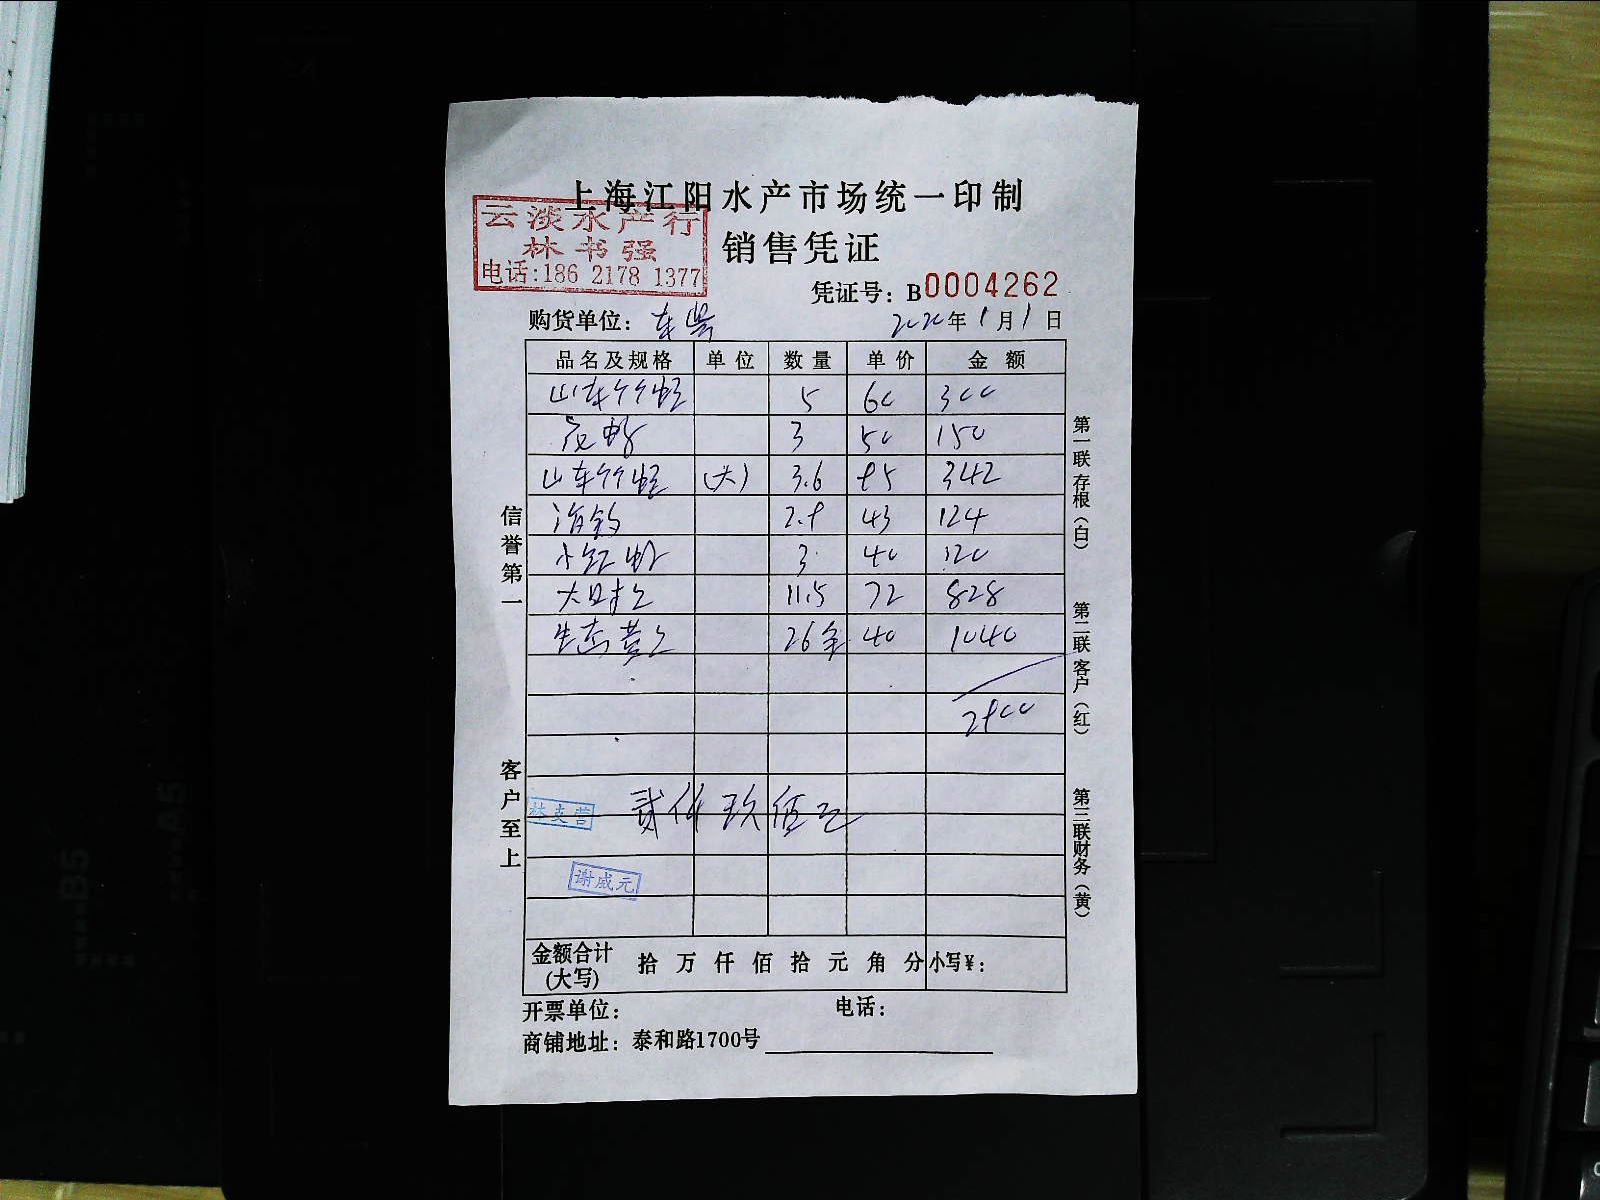 上海江阳水产市场统一印制
云淡水产行
林书强
电话:186 2178 1377
销售凭证
凭证号：B0004262
购货单位：
2020年1月1日
品名及规格 单位 数量 单价 金额
山东竹蛏 5 60 300
花蛤 3 50 150
山东竹蛏 (大) 3.6 95 342
2.9 43 124
小红虾 3 40 120
11.5 72 828
生态黄 26 40 1040
2900
贰仟玖佰元
林支营
谢威元
金额合计(大写) 拾万仟佰拾元角分 小写¥：
开票单位： 电话：
商铺地址：泰和路1700号
信誉第一
客户至上
第一联存根(白)
第二联客户(红)
第三联财务(黄)
A5
B5